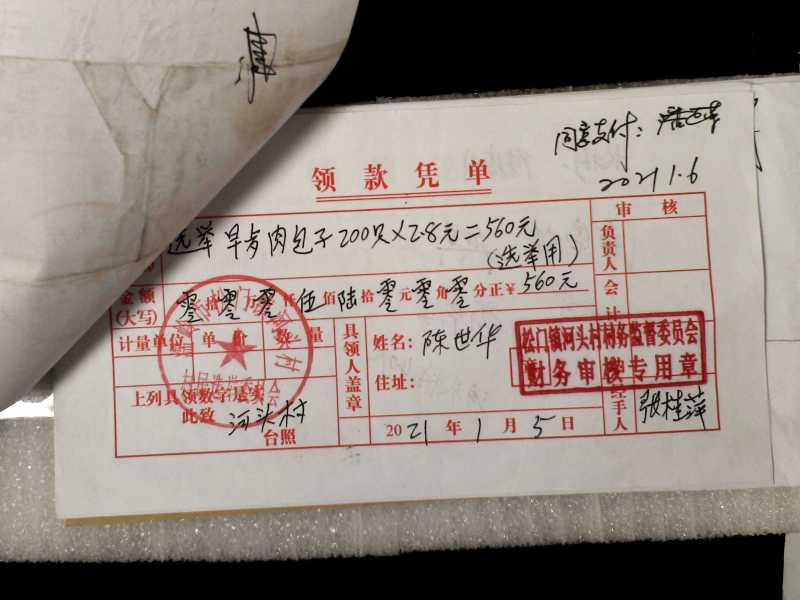 同意支付：
2021.1.6
领款凭单
选举早步肉包子200只×2.8元=560元
(选举用)
审核
负责人
会计
金额
(大写)
零拾零万零仟伍佰陆拾零元零角零分正¥560元
计量单位 单价 数量
具领人盖章
姓名：陈世华
住址：
松门镇河头村村务监督委员会
财务审核专用章
上列具领数字是实
此致 河头村 台照
2021年1月5日
经手人
张桂萍